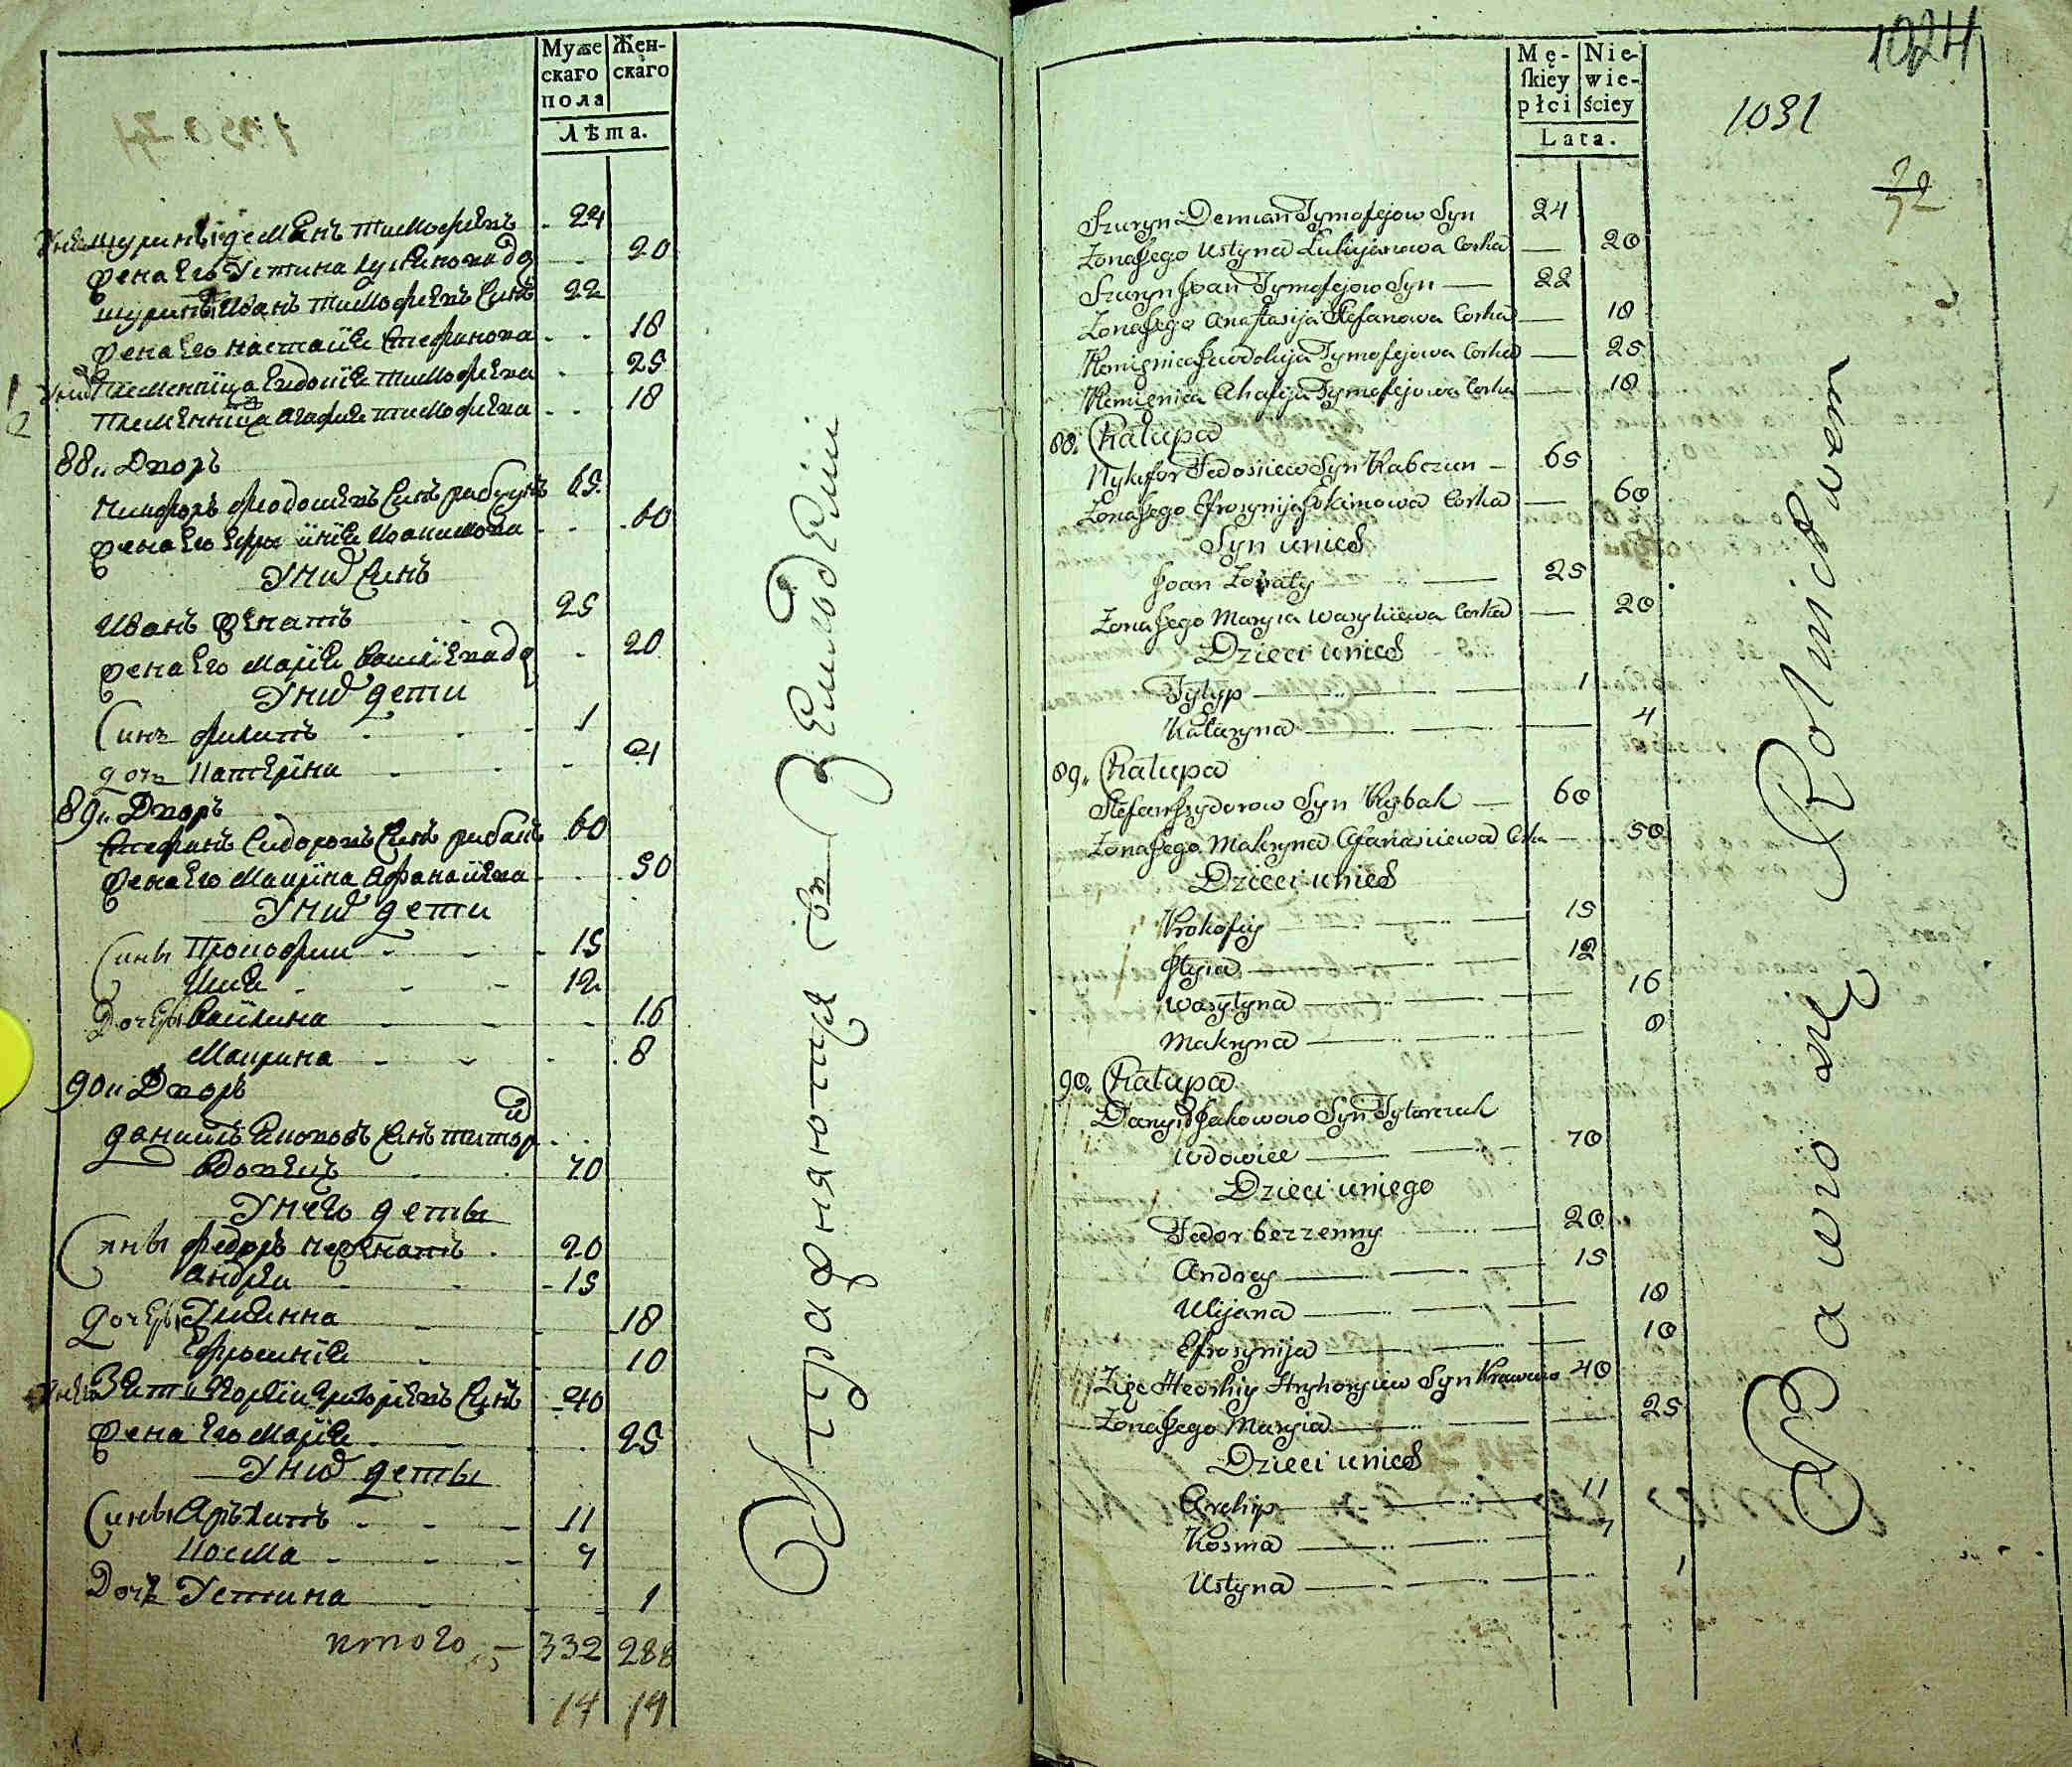 Мужескаго пола
Женскаго
Лѣта.
шуринъ демянъ тимофѣевъ 24
жена Его Устина 20
шуринъ Иванъ тимофѣевъ Синъ 22
жена Его настасія Стефанова 18
племенница Евдокія тимофѣева 25
племенница Агафия тимофѣева 18
88. Дворъ
Никифоръ Феодосѣевъ Синъ рабчунъ 65
жена Его Акимова 60
У них Синъ
Иванъ женатъ 25
жена Его Марія 20
У них дети
Синъ филипъ 1
дочъ Катерина 4
89. Дворъ
Стефанъ Сидоровъ Синъ рибакъ 60
жена Его Макрина Афанасіева 50
У них дети
Сины Прокофии 15
Илия 12
Дочери Василина 16
Макрина 8
90. Дворъ
данило Яковов Синъ
вдовецъ 70
У него дети
Сины федоръ неженатъ 20
Андреи 15
дочери Улиянна 18
Ефросиния 10
Зять Синъ 40
жена Его Мария 25
У них дети
Сины Архипъ 11
Козма 7
Дочь Устина 1
итого 332 288
14 14
Упражняются въ Земледелии
1024
1031
Mę-skiey płci
Nie-wie-ściey
Lata.
Szuryn Demian Tymofejow Syn 24
Zona Jego Ustyna Lukijanowa Corka 20
Szuryn Joan Tymofejow Syn 22
Zona Jego Anastasija Stefanowa Corka 18
Jewdokija Tymofejowa Corka 25
Ahafija Tymofejowa Corka 18
88. Chałupa
Nykifor Fedosiiew Syn Rabczun 65
Zona Jego Efrosynija Jokimowa Corka 60
Syn u nich
Joan Zonaty 25
Zona Jego Maryia Wasyliiewa Corka 20
Dzieci u nich
Fylyp 1
Kataryna 4
89. Chałupa
Stefan Syn Rybak 60
Zona Jego Makryna Afanasiiewa Corka 50
Dzieci u nich
Prokofiy 15
Illia 12
Wasylyna 16
Makryna 8
90. Chałupa
Danyło Jakowow Syn Tytarczuk
wdowiec 70
Dzieci u niego
Fedor bezzenny 20
Andrey 15
Ulijana 18
Efrosynija 10
Zięc Heorhiy Hryhoryiew Syn Krawiec 40
Zona Jego Maryia 25
Dzieci u nich
Archip 11
Kosma 7
Ustyna 1
Bawią się Rolnictwem